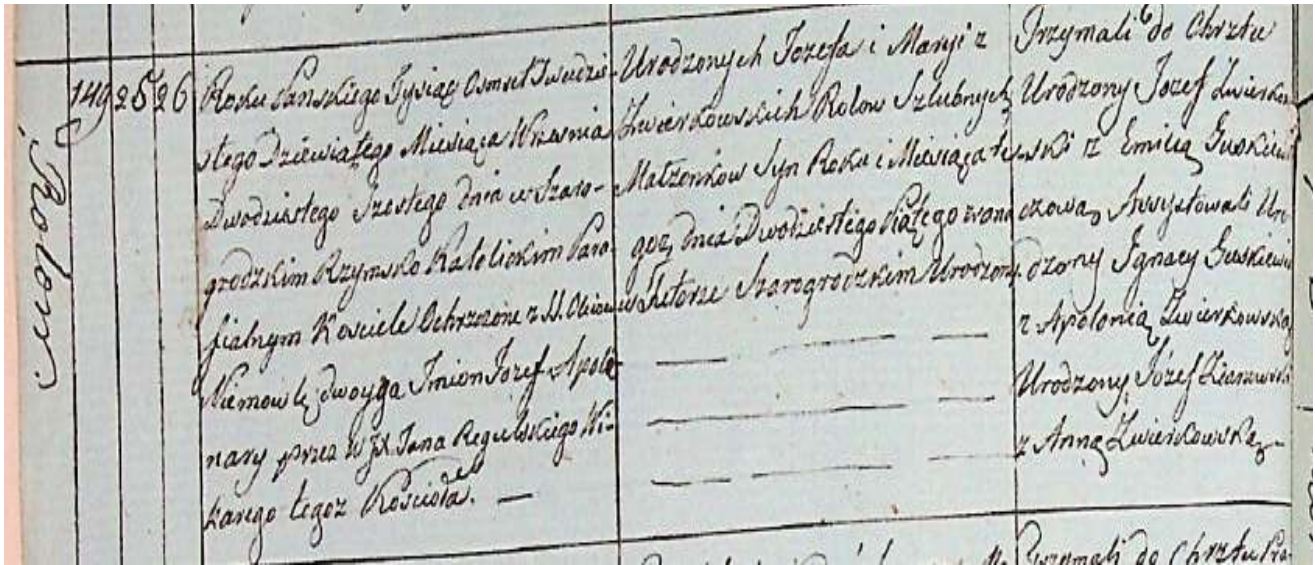 149 25 26
Rolow.
Roku Pańskiego Tysiąc Osmset Dwudzie-
stego Dziewiątego Miesiąca Wrzesnia
Dwudziestego Szostego dnia w Szaro-
grodzkim Rzymsko Katolickim Para-
fialnym Kosciele Ochrzczone z SS. Oleiow
Niemowlę dwoyga Imion Jozef Apoli-
nary przez W JX Jana Regulskiego Wi-
karego tegoz Kościoła. —
Urodzonych Jozefa i Maryi z
Zwierkowskich Rolow Szlubnych
Małzonkow Syn Roku i Miesiąca te-
goz dnia Dwudziestego Piątego zrana
w Futorze Szarogrodzkim Urodzony.
Trzymali do Chrztu
Urodzony Jozef Zwierkow-
ski z Emilią Guskiewi-
czową Assystowali Uro-
dzony Ignacy Guskiewicz
z Apolonią Zwierkowską
Urodzony Józef
z Anną Zwierkowską —
Trzymali do Chrztu